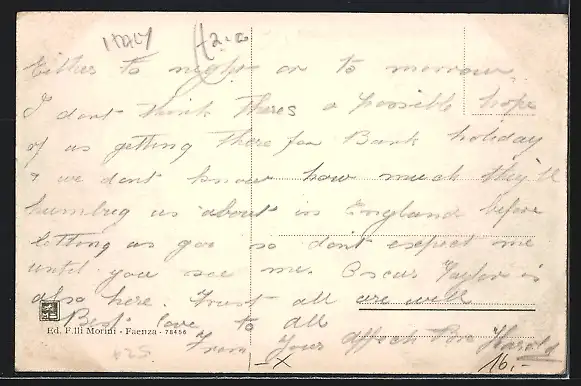 Italy
Either to night or to morrow.
I dont think theres a possible hope
of us getting there for Bank holiday
& we dont know how much they'll
humbug us about in England before
letting us goe so dont expect me
until you see me. Oscar Taylor is
also here. Trust all are well
Best love to all
From Your affect Bro Harold
Ed. F.lli Morini - Faenza - 78456
x
16,-